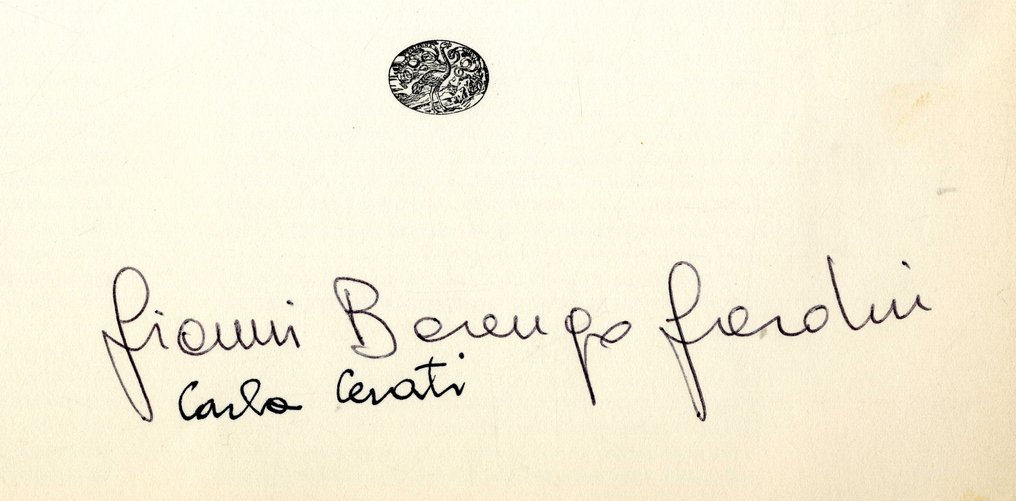 Gianni Berengo Gardin
Carla Cerati